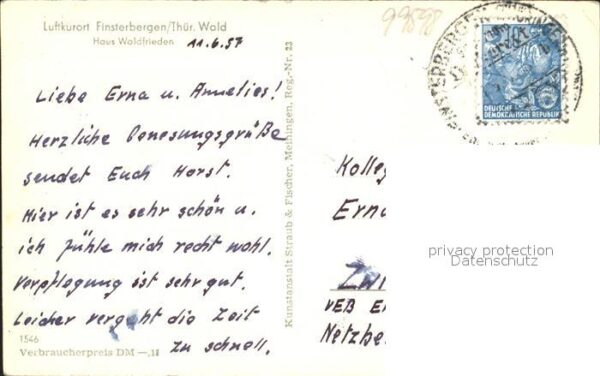 Luftkurort Finsterbergen/Thür. Wald
Haus Waldfrieden
11.6.57
Liebe Erna u. Annelies!
Herzliche Genesungsgrüße
sendet Euch Horst.
Hier ist es sehr schön u.
ich fühle mich recht wohl.
Verpflegung ist sehr gut.
Leider vergeht die Zeit
zu schnell.
1546
Verbraucherpreis DM —.18
Kunstanstalt Straub & Fischer, Meiningen, Reg.-Nr. 23
99598
FINSTERBERGEN
DEUTSCHE
DEMOKRATISCHE REPUBLIK
Kolleg
Erna
privacy protection
Datenschutz
Zwi
VEB E
Netzbe